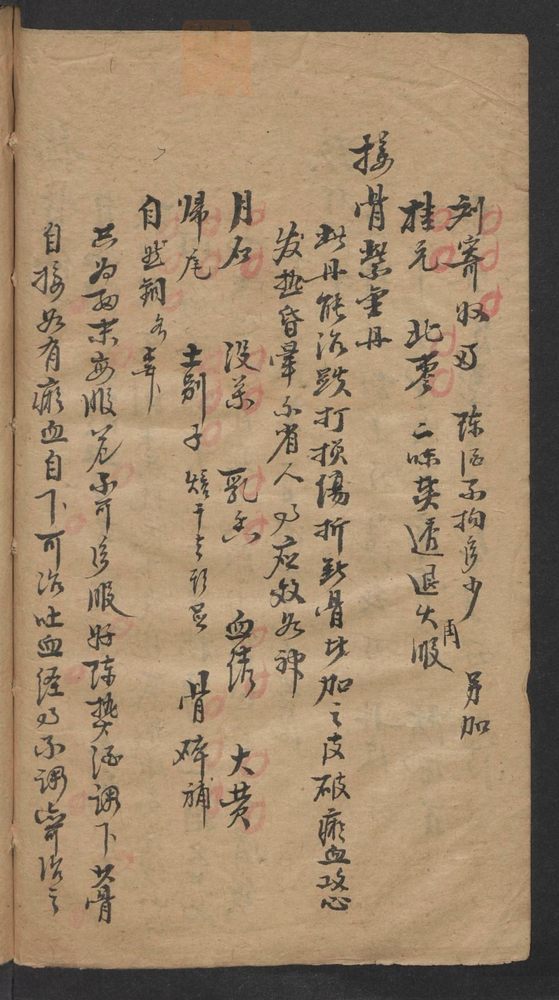 刘寄奴 陈酒不拘多少 另加
桂元 北蓼 二味煎透退火再服
接骨紫金丹
此丹能治跌打损伤折断骨 加之皮破瘀血攻心
发热昏晕不省人 应效如神
月石 没药 乳香 血结 大黄
归尾 土别子 焙干去头足 骨碎补
自然铜各
共为西末每服 不可多服好陈热酒调下其骨
自接如有瘀血自下可治吐血经 不调 治之